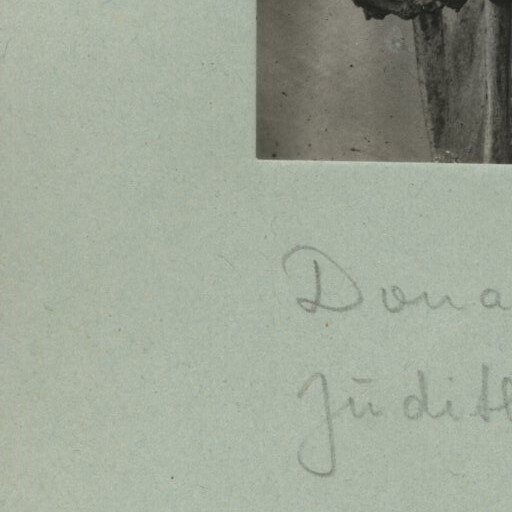 Dona
Judith